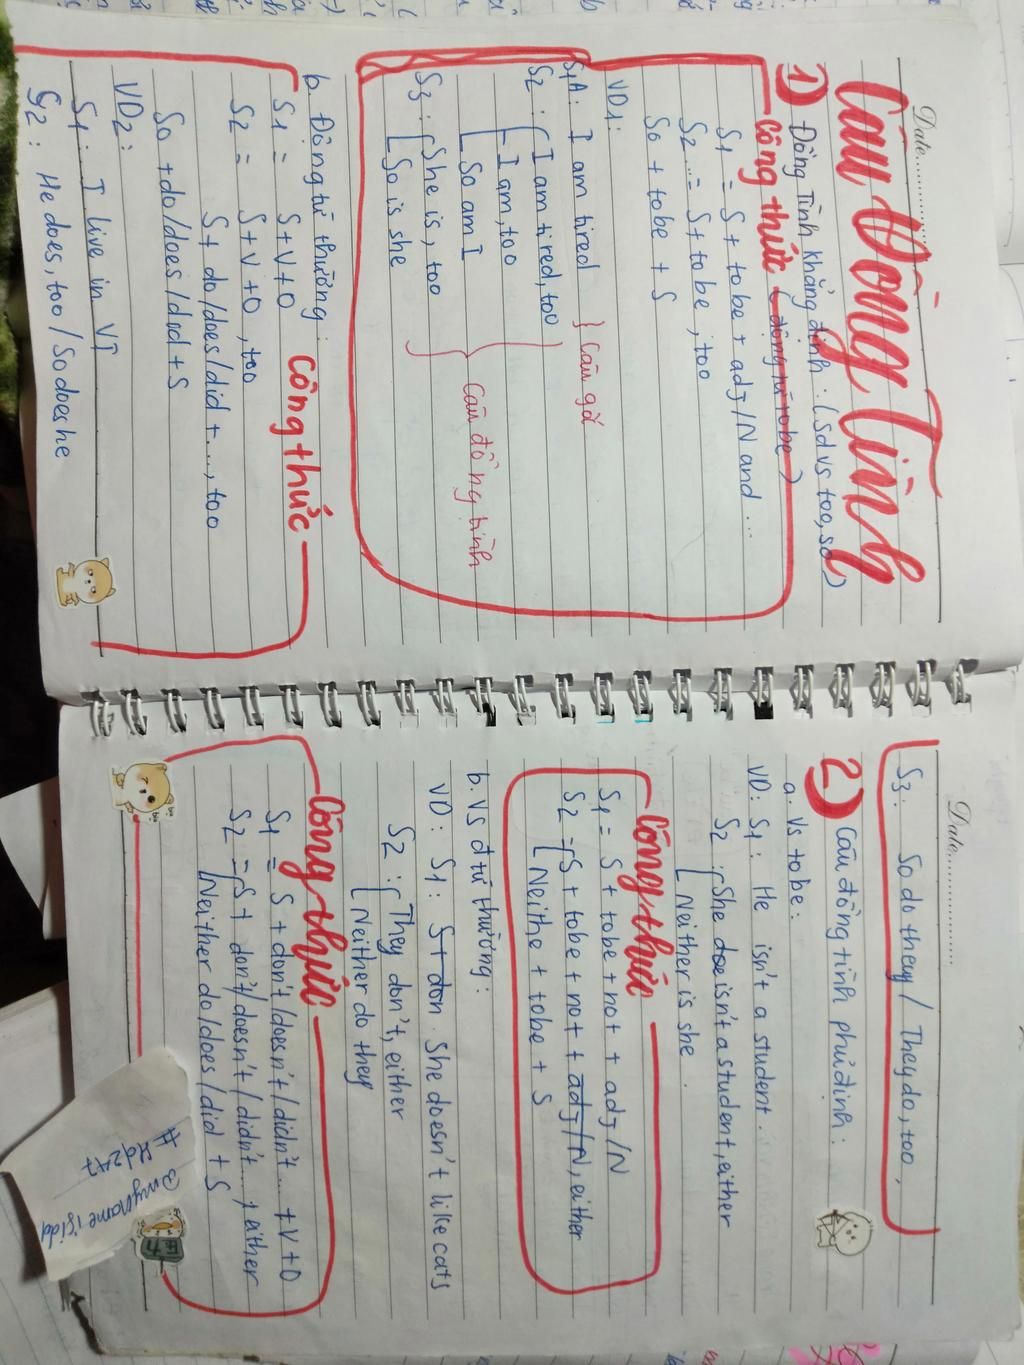 Date
Câu Đồng Tình
1) Đồng Tình khẳng định : (Sd vs too, so)
Công thức (động từ tobe)
S1 = S + tobe + adj/N and ...
S2 = S + tobe , too
So + tobe + S
VD1:
S1A : I am tired } câu gờ
S2 : I am tired, too
I am, too
So am I
S3 : She is, too
So is she
câu đồng tình
b. Động từ thường :
Công thức
S1 = S+V+O
S2 = S+V+O, too
S+ do/does/did+..., too
So +do/does/did+S
VD2:
S1: I live in VT
S2: He does, too / So does he
Date
S3: So do they / They do, too,
2) Câu đồng tình phủ định :
a. Vs tobe:
VD: S1: He isn't a student.
S2 : She doe isn't a student, either
Neither is she.
Công thức
S1 = S + tobe + not + adj/N
S2 = S + tobe + not + adj/N, either
Neithe + tobe + S
b. Vs đ từ thường:
VD: S1: S+don She doesn't like cats
S2 : They don't, either
Neither do they
Công thức
S1 = S + don't/doesn't/didn't... +V+O
S2 = S+ don't/doesn't/didn't..., either
Neither do/does/did + S
@mynameisidd
#Hd247